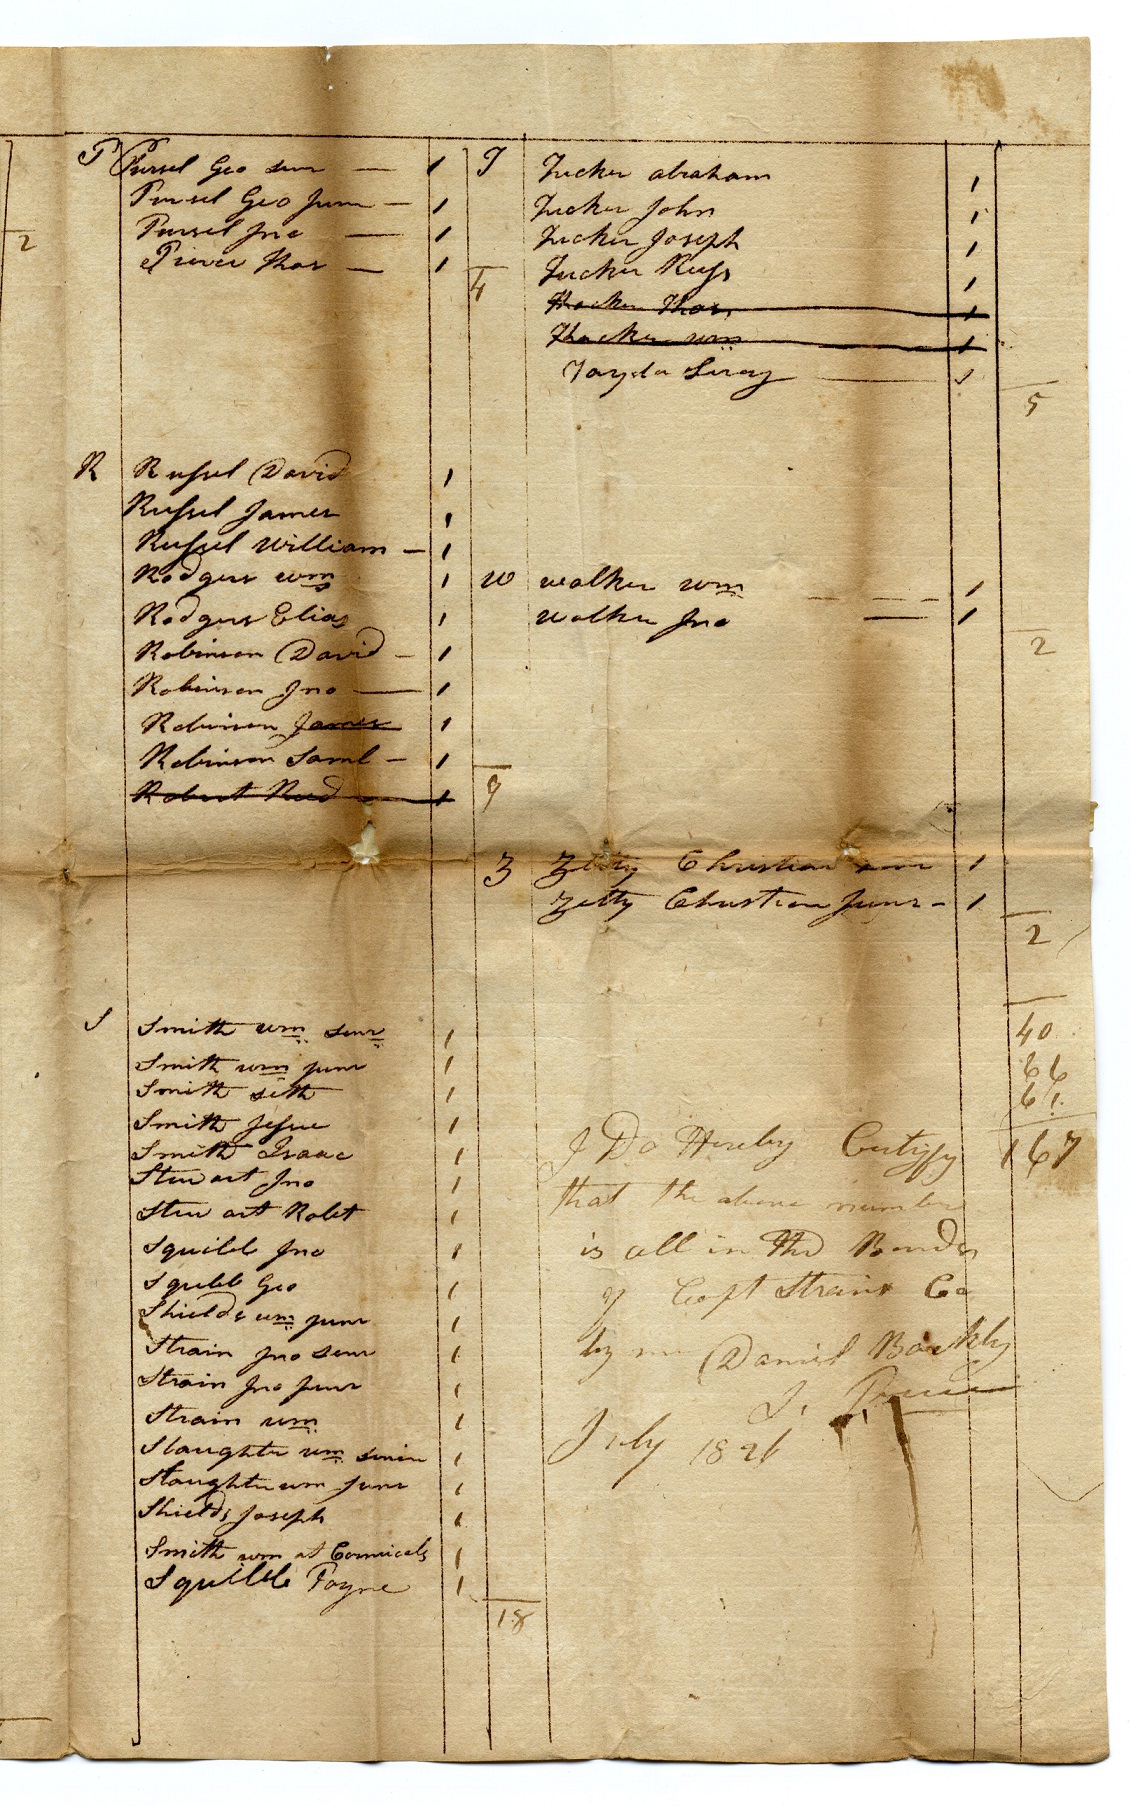 2
P Pursel Geo senr — 1
Pursel Geo Junr — 1
Pursel Jno — 1
Prever Thos — 1
4
R Russel David 1
Russel James 1
Russel William — 1
Rodgers wm 1
Rodgers Elias 1
Robinson David — 1
Robinson Jno — 1
Robinson James 1
Robinson Saml — 1
Robert Reed 1
9
S Smith wm senr 1
Smith wm junr 1
Smith seth 1
Smith Jesse 1
Smith Isaac 1
Stewart Jno 1
Stewart Robt 1
Squibb Jno 1
Squibb Geo 1
Shields wm junr 1
Strain Jno senr 1
Strain Jno junr 1
Strain wm 1
Slaughter wm senior 1
Slaughter wm junr 1
Shields Joseph 1
Smith wm at Cormicals 1
Squibb Payne 1
18
T Tucker abraham 1
Tucker John 1
Tucker Joseph 1
Tucker 1
Thacker Thos. 1
Thacker wm 1
1
5
W walker wm 1
walker Jno 1
2
Z Zetty Christian senr 1
Zetty Christian Junr - 1
2
40
66
61
167
I Do Hereby Certify
that the above number
is all in the Bounds
of Capt Strains Co
by me Daniel Barkly
July 1826